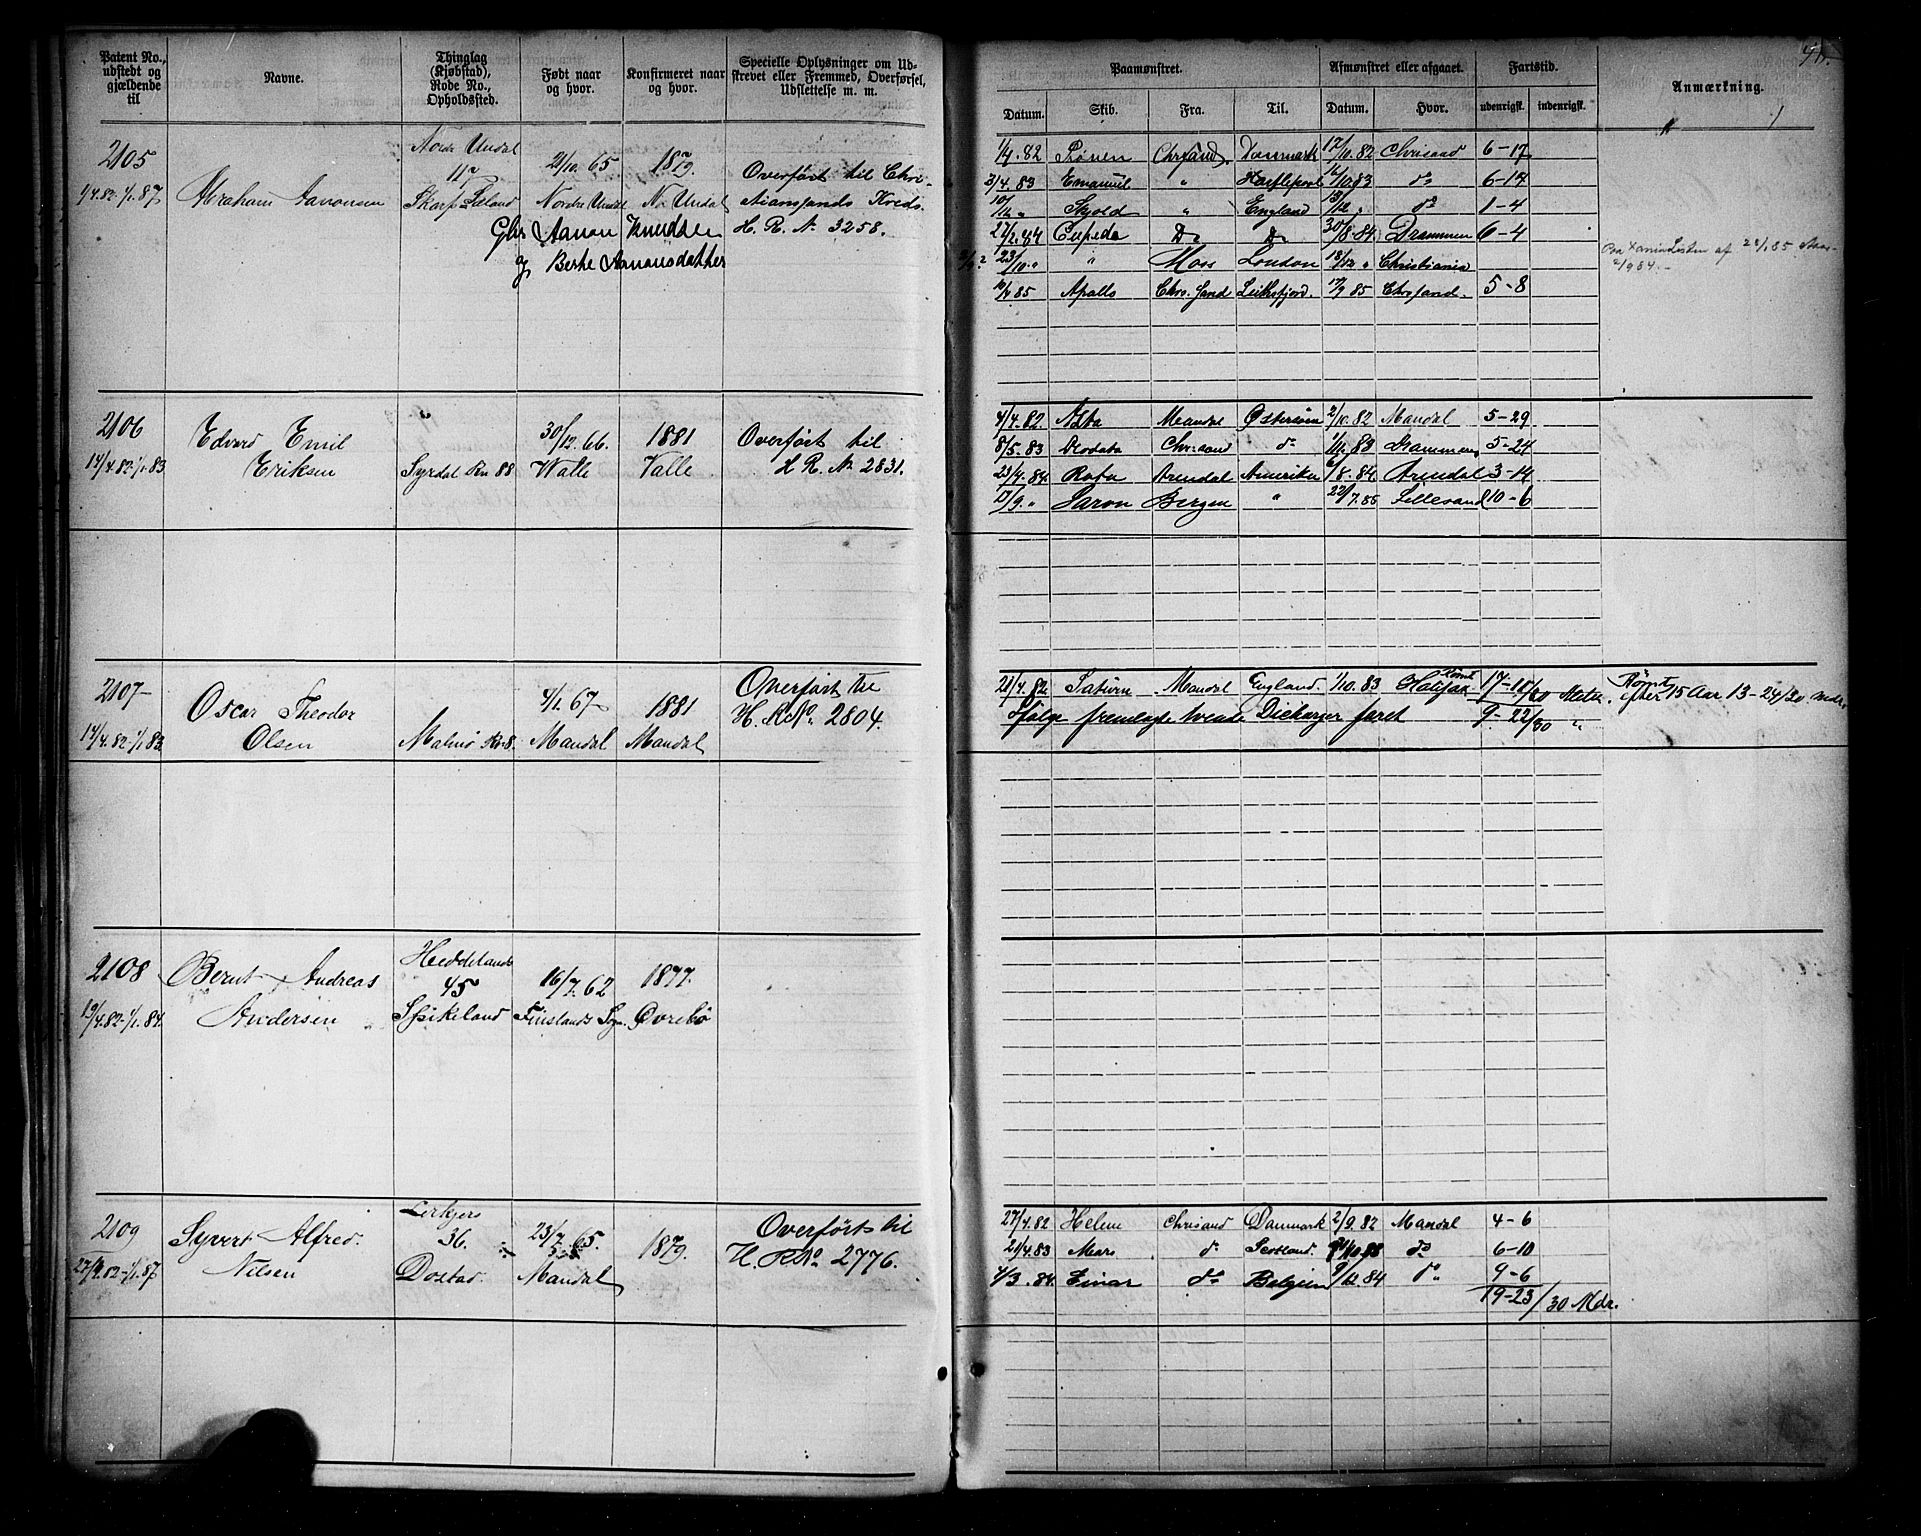 Patent No., udstedt og gjældende til
Navne.
Thinglag (Kjøbstad), Rode No., Opholdssted.
Født naar og hvor.
Konfirmeret naar og hvor.
Specielle Oplysninger om Udskrevet eller Fremmed, Overførsel, Udslettelse m. m.
Paamønstret.
Afmønstret eller afgaaet.
Fartstid.
Anmærkning.
Datum. Skib. Fra. Til. Datum. Hvor. udenrigsk. indenrigsk.
2105
1/4.82-1/1.87
Abraham Aanonsen
Nordre Undal
117
21/10.65
Nordre Undal
1879.
N. Undal
Overført til Chri-
stianssands Kreds.
H. R. No 3258.
Aanon Knudsen
og Berte Aanonsdatter
1/4.82 Danmark 17/10.82 Chrisand 6-17
3/4.83 Emanuel " Hartlepool 16/10.83 do 6-14
Skjold " England 13/12 " do 1-4
27/2.84 Cupido Do Do 30/8.84 Drammen 6-4
23/10." " Moss London 18/12 " Christiania
Apollo Chr.sand 17/9 85 Chrsand. 5-8
2106
14/4.82-1/1.83
Edvard Emil
Eriksen
Syrdal Rn 88
30/12.66
Walle
1881
Valle
Overført til
H. R. No 2831.
4/4.82 Asta Mandal Østersøen 2/10.82 Mandal 5-29
8/5.83 Deodata Chr.sand do 1/11.83 Drammen 5-24
23/4.84. Rota Arendal Amerika 6/8.84 Arendal 3-14
17/9." Saron Bergen " 22/7.85 Lillesand 10-6
2107
14/4.82-1/1.83
Oscar Theodor
Olsen
Malmø Rn 8.
4/1.67
Mandal
1881
Mandal
Overført til
H. R. No. 2804.
21/4.82 Saturn Mandal England. 1/10.83 Halifax Rømt
Ifølge fremlagte tvende Discharger faret 9-22/30 "
Rømt
efter 15 Aar 13-24/30 mdr.
2108
19/4.82-1/1.84.
Bernt Andreas
Andersen
Heddeland
45
Spikeland
16/7.62
Finslands Sogn.
1877.
Øvrebø
2109
27/4.82-1/1.87
Syvert Alfred.
Nilsen
36.
Dostad.
23/7.65.
Mandal
1879.
Overført til
H. R. No. 2776.
27/4.82 Helene Chrisand Danmark 2/9.82 Mandal 4-6
21/4.83 Mars do Scotland. do 6-10
4/3.84. Einar do Belgien 9/12.84 do 9-6
19-23/30 Mdr.